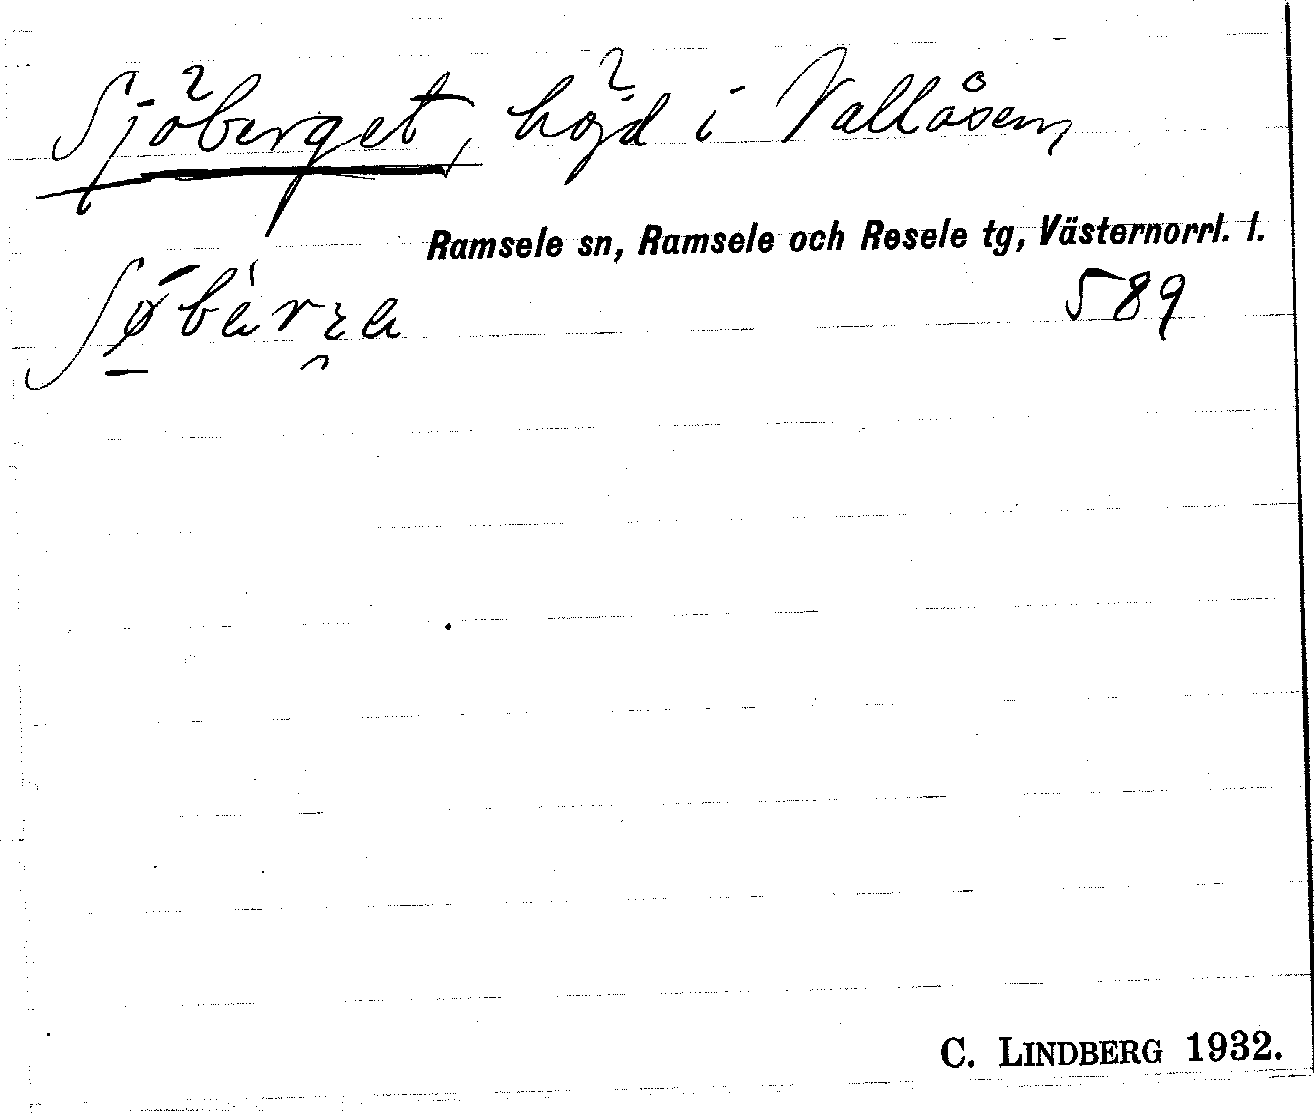 Sjöberget, höjd i Vallåsen,
Ramsele sn, Ramsele och Resele tg, Västernorrl. l.
589
C. LINDBERG 1932.